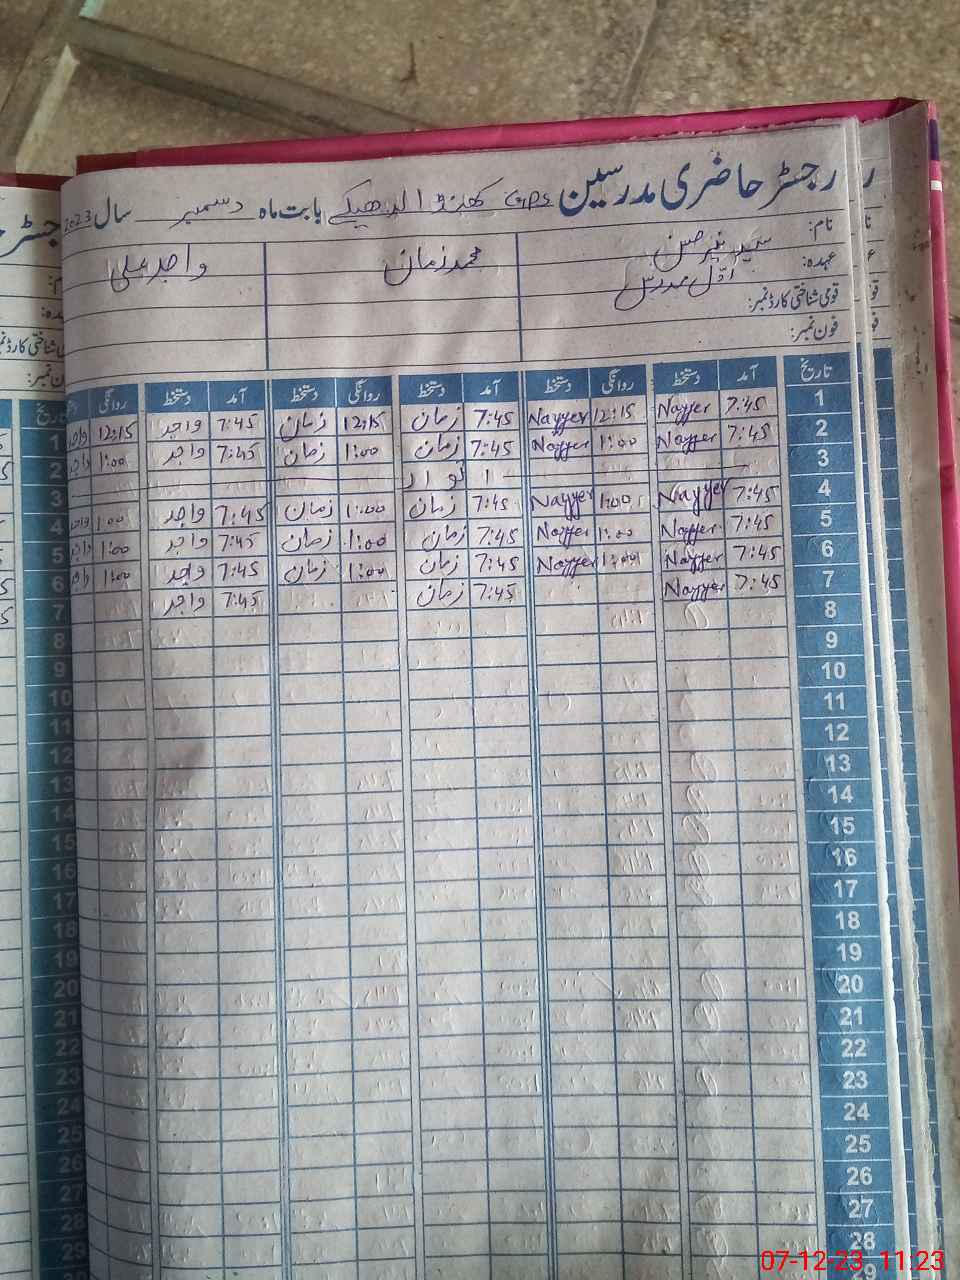 رجسٹر حاضری مدرسین GPS کھنڈا الدھیکے بابت ماہ دسمبر سال 2023
نام: سید نیر حسن محمد زمان واجد علی
عہدہ: اوّل مدرس
قومی شناختی کارڈ نمبر:
فون نمبر:
تاریخ آمد دستخط روانگی دستخط آمد دستخط روانگی دستخط آمد دستخط روانگی
1 7:45 Nayyer 12:15 Nayyer 7:45 زمان 12:15 زمان 7:45 واجد 12:15 واجد
2 7:45 Nayyer 1:00 Nayyer 7:45 زمان 1:00 زمان 7:45 واجد 1:00 واجد
3 اتوار
4 7:45 Nayyer 1:00 Nayyer 7:45 زمان 1:00 زمان 7:45 واجد 1:00 واجد
5 7:45 Nayyer 1:00 Nayyer 7:45 زمان 1:00 زمان 7:45 واجد 1:00 واجد
6 7:45 Nayyer 1:00 Nayyer 7:45 زمان 1:00 زمان 7:45 واجد 1:00 واجد
7 7:45 Nayyer 7:45 زمان 7:45 واجد
8
9
10
11
12
13
14
15
16
17
18
19
20
21
22
23
24
25
26
27
28
29
07-12-23 11:23